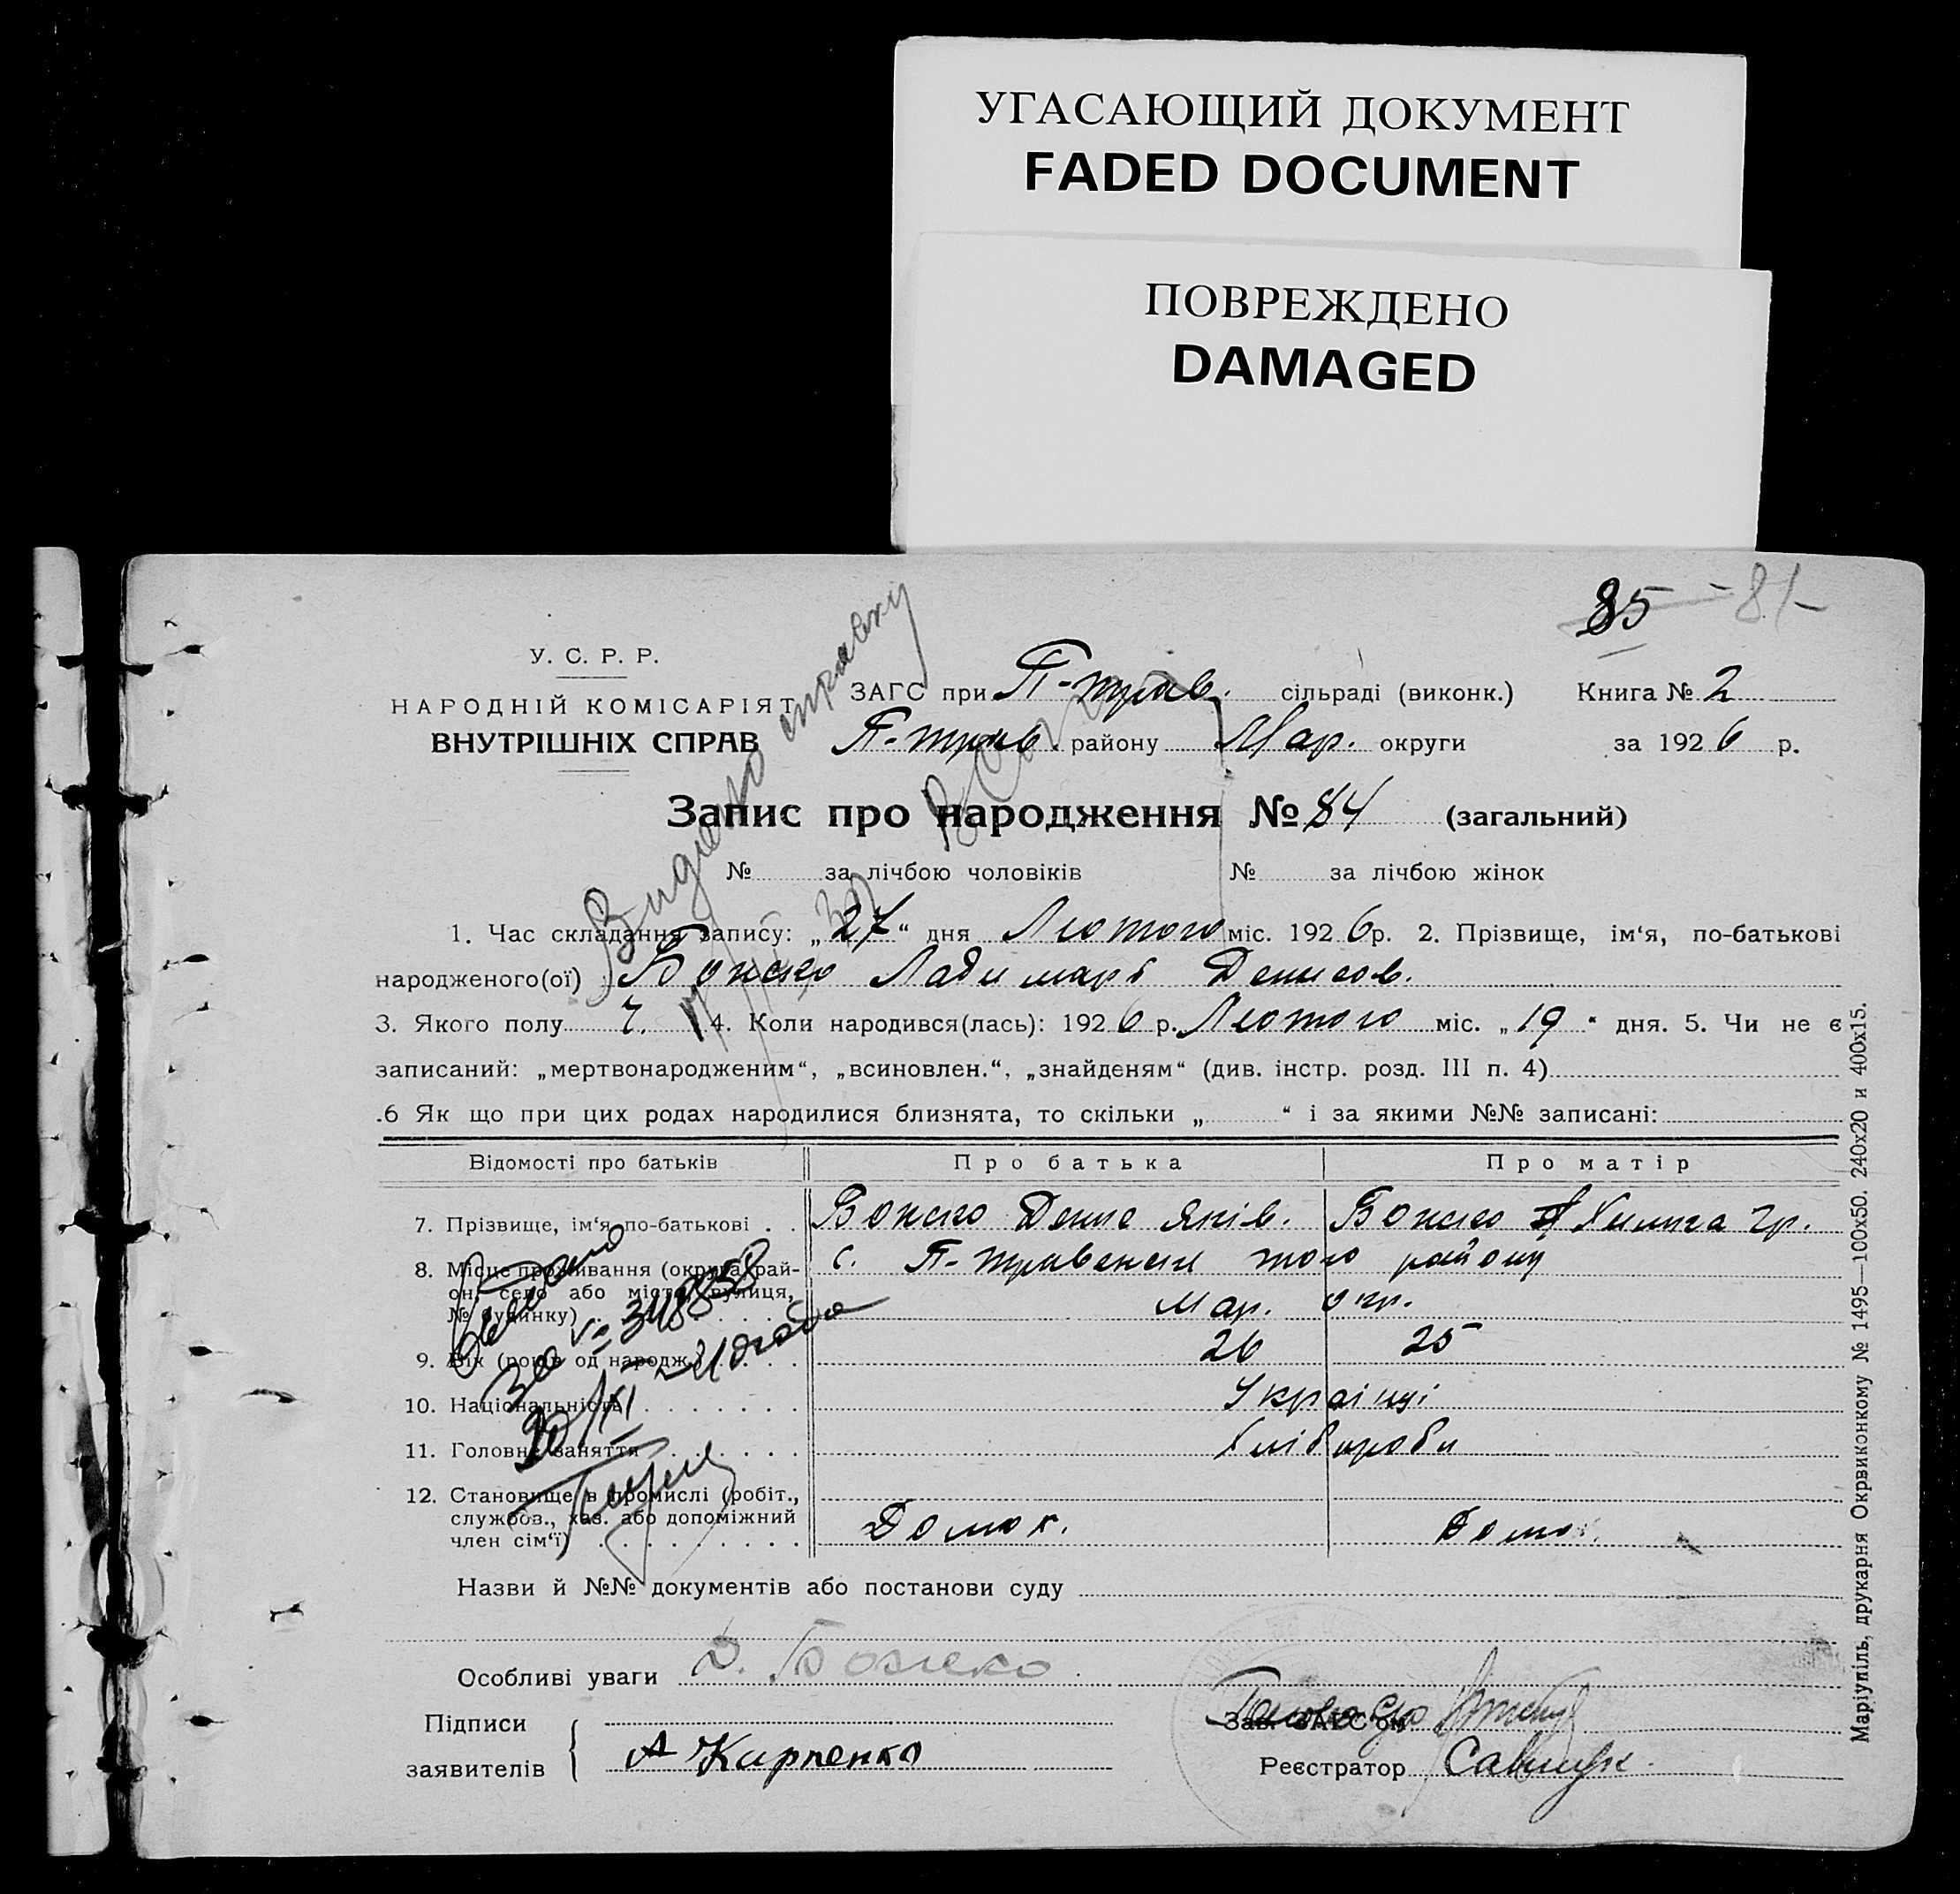 УГАСАЮЩИЙ ДОКУМЕНТ
FADED DOCUMENT
ПОВРЕЖДЕНО
DAMAGED
85 - 81-
У. С. Р. Р.
НАРОДНІЙ КОМІСАРІЯТ
ВНУТРІШНІХ СПРАВ
ЗАГС при П-трав. сільраді (виконк.) Книга № 2
П-трав. району Мар. округи за 1926 р.
Видано справку
Запис про народження № 84 (загальний)
№ за лічбою чоловіків № за лічбою жінок
1. Час складання запису: „27“ дня Лютого міс. 1926р. 2. Прізвище, ім‘я, по-батькові
народженого(ої) Божко Ладимарь Денисов.
3. Якого полу Ч. 4. Коли народився(лась): 1926 р. Лютого міс. „19“ дня. 5. Чи не є
записаний: „мертвонародженим“, „всиновлен.“, „знайденям“ (див. інстр. розд. III п. 4)
.6 Як що при цих родах народилися близнята, то скільки „ “ і за якими №№ записані:
Відомості про батьків Про батька Про матір
7. Прізвище, ім‘я по-батькові . . Божко Денис Яків. Божко Хилина Гр.
8. Місце проживання (округа, рай- с. П-травенси того району
он, село або місто, вулиця,
№ будинку) Мар. окр.
9. Вік (років од народж.) 26 25
10. Національність Українці
11. Головне заняття Хлібороби
12. Становище в промислі (робіт.,
службов., хаз. або допоміжний
член сім‘ї) Домох. Домо
Назви й №№ документів або постанови суду
Особливі уваги Д. Божко
Підписи
заявителів А Кирпенко
Зав. ЗАГС‘ом
Реєстратор Савчук
Маріупіль, друкарня Окрвиконкому № 1495—100х50. 240х20 и 400х15.